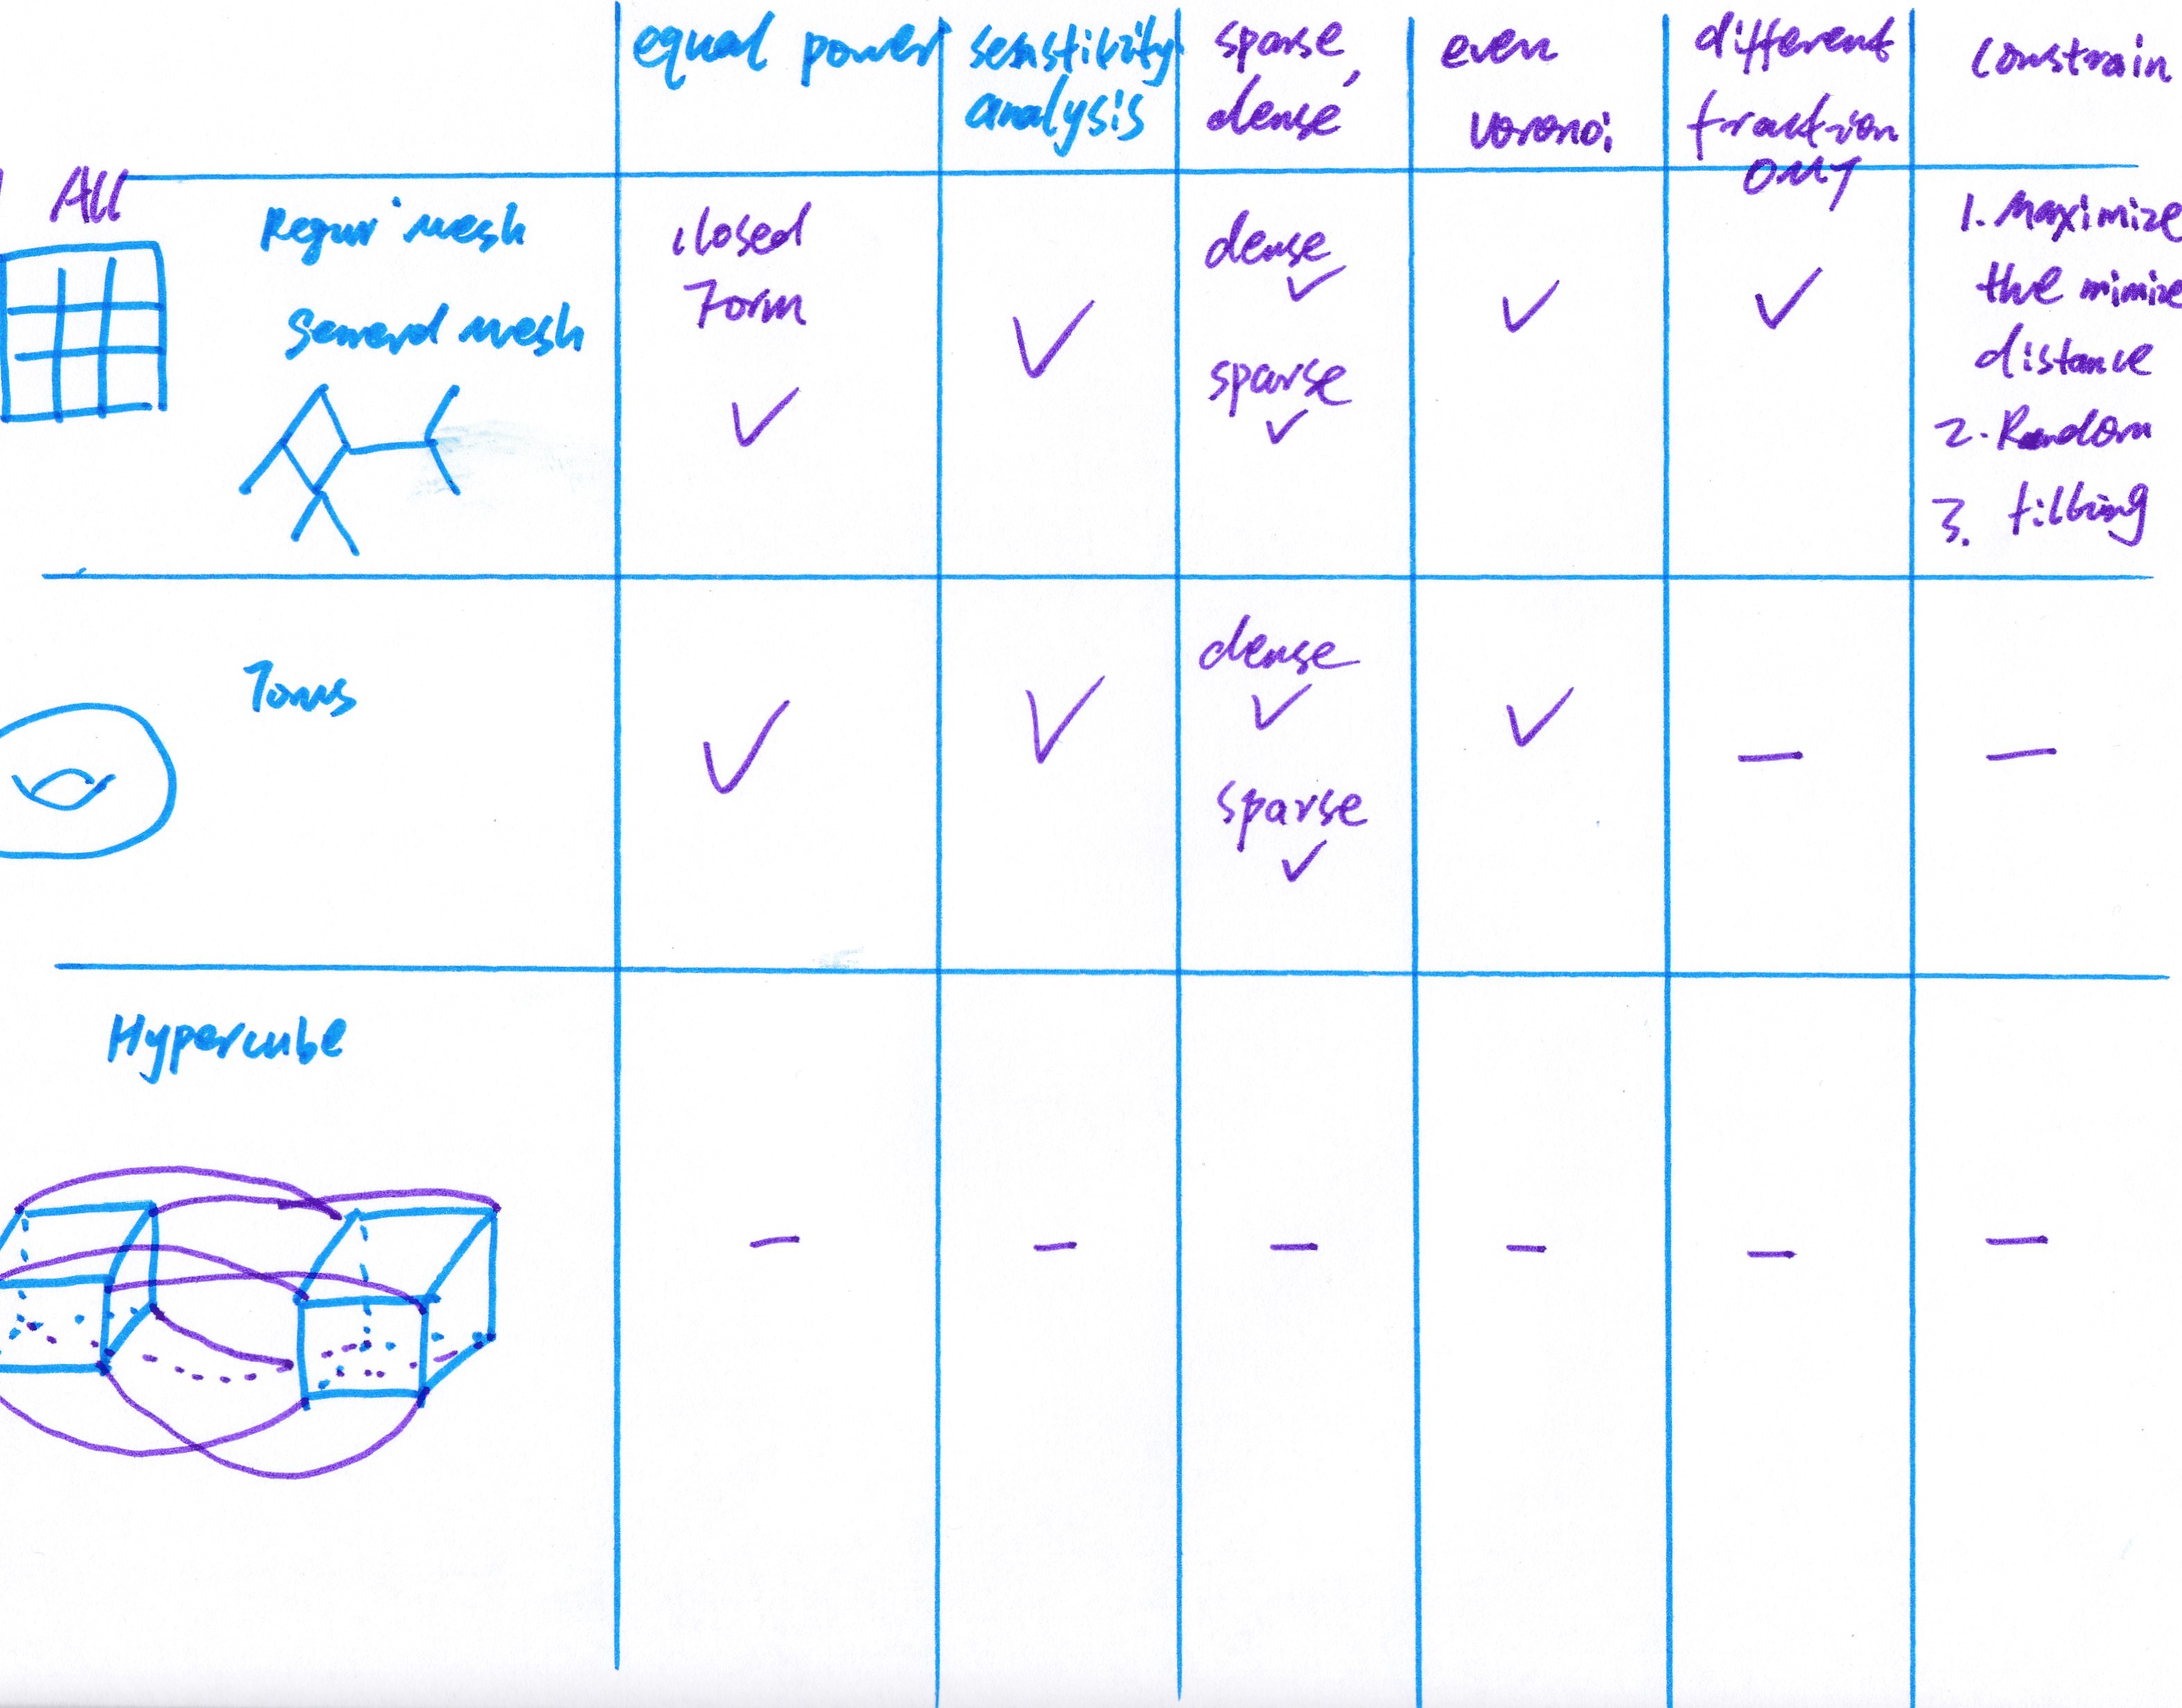 equal power
sensitivity
analysis
sparse,
dense
even
voronoi
different
fraction
only
constrain
All
Regur mesh
General mesh
closed
Form
✓
✓
dense
✓
sparse
✓
✓
✓
1. Maximize
the mimize
distance
2. Random
3. filling
Torus
✓
✓
dense
✓
sparse
✓
✓
—
—
Hypercube
—
—
—
—
—
—